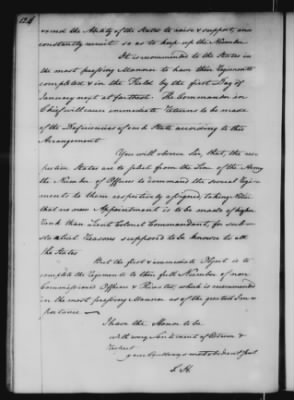 124
exceed the Ability of the States to raise & support, and
constantly recruit so as to keep up this Number
It is recommended to the States in
the most pressing Manner to have their Regiments
compleat & in the Field by the first Day of
January next at farthest. The Commander in
Chief will cause immediate Returns to be made
of the Deficiencies of each State according to this
Arrangement
You will observe Sir, that, the res
pective States are to select from the Line of the Army
the Number of Officers to command the several Regi
ments to them respectively assigned, taking Notice
that no new Appointment is to be made of higher
Rank than Lieut Colonel Commandant, for sub
stantial Reasons supposed to be known to all
the States
But the first & immediate Object is to
compleat the Regiments to their full Number of non
Commissioned Officers & Privates, which is recommended
in the most pressing Manner as of the greatest Im
portance
I have the Honor to be
with very Sentiment of Esteem &
Respect
your most obedient
S. H.